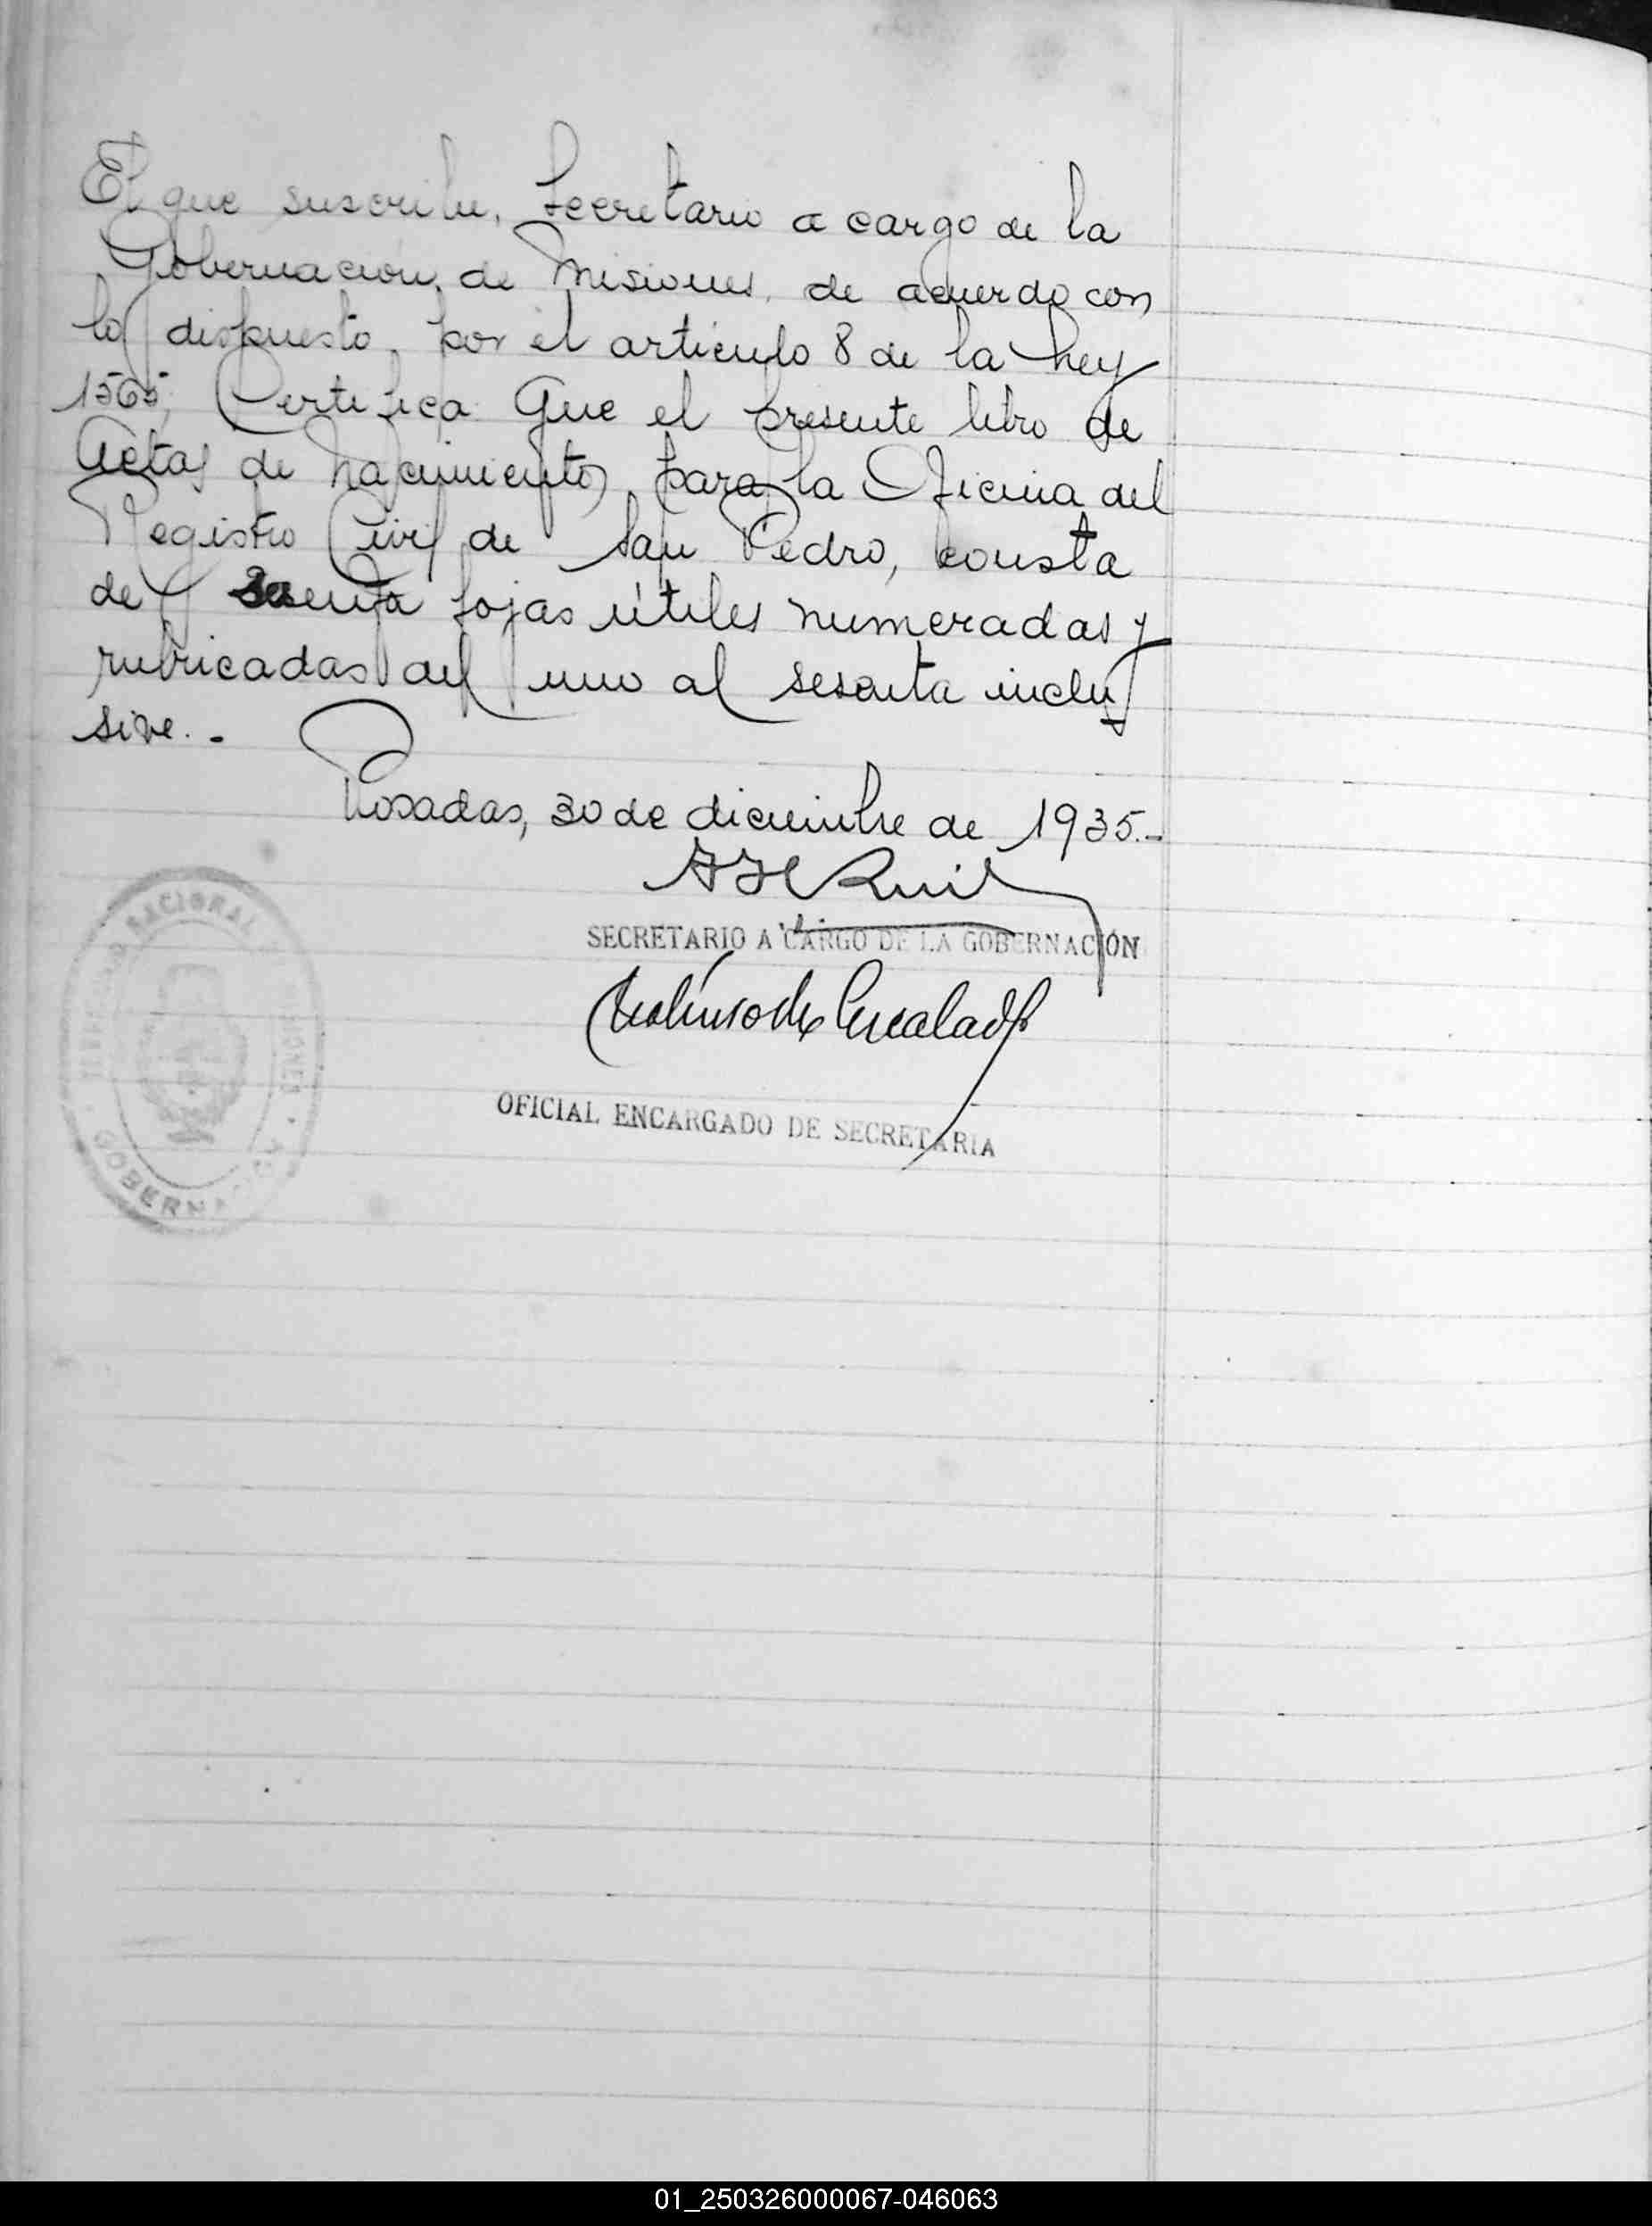 El que suscribe, Secretario a cargo de la
Gobernación de Misiones, de acuerdo con
lo dispuesto por el artículo 8 de la Ley
1565, Certifica: Que el presente libro de
Actas de Nacimientos para la Oficina del
Registro Civil de San Pedro, consta
de sesenta fojas útiles numeradas y
rubricadas del uno al sesenta inclu
sive.-
Posadas, 30 de diciembre de 1935.-
SECRETARIO A CARGO DE LA GOBERNACIÓN
OFICIAL ENCARGADO DE SECRETARIA
NACIONAL
GOBERNA
01_250326000067-046063